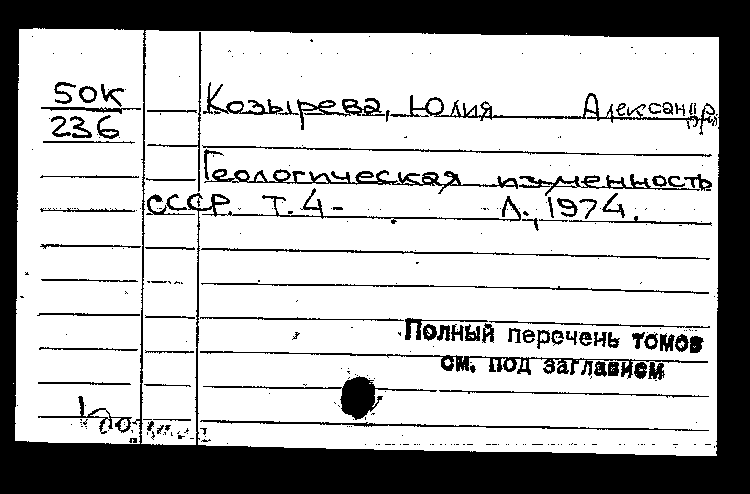 50К
236
Козырева, Юлия Александр
Геологическая изученность
СССР. Т. 4- . Л., 1974.
Полный перечень томов
см. под заглавием